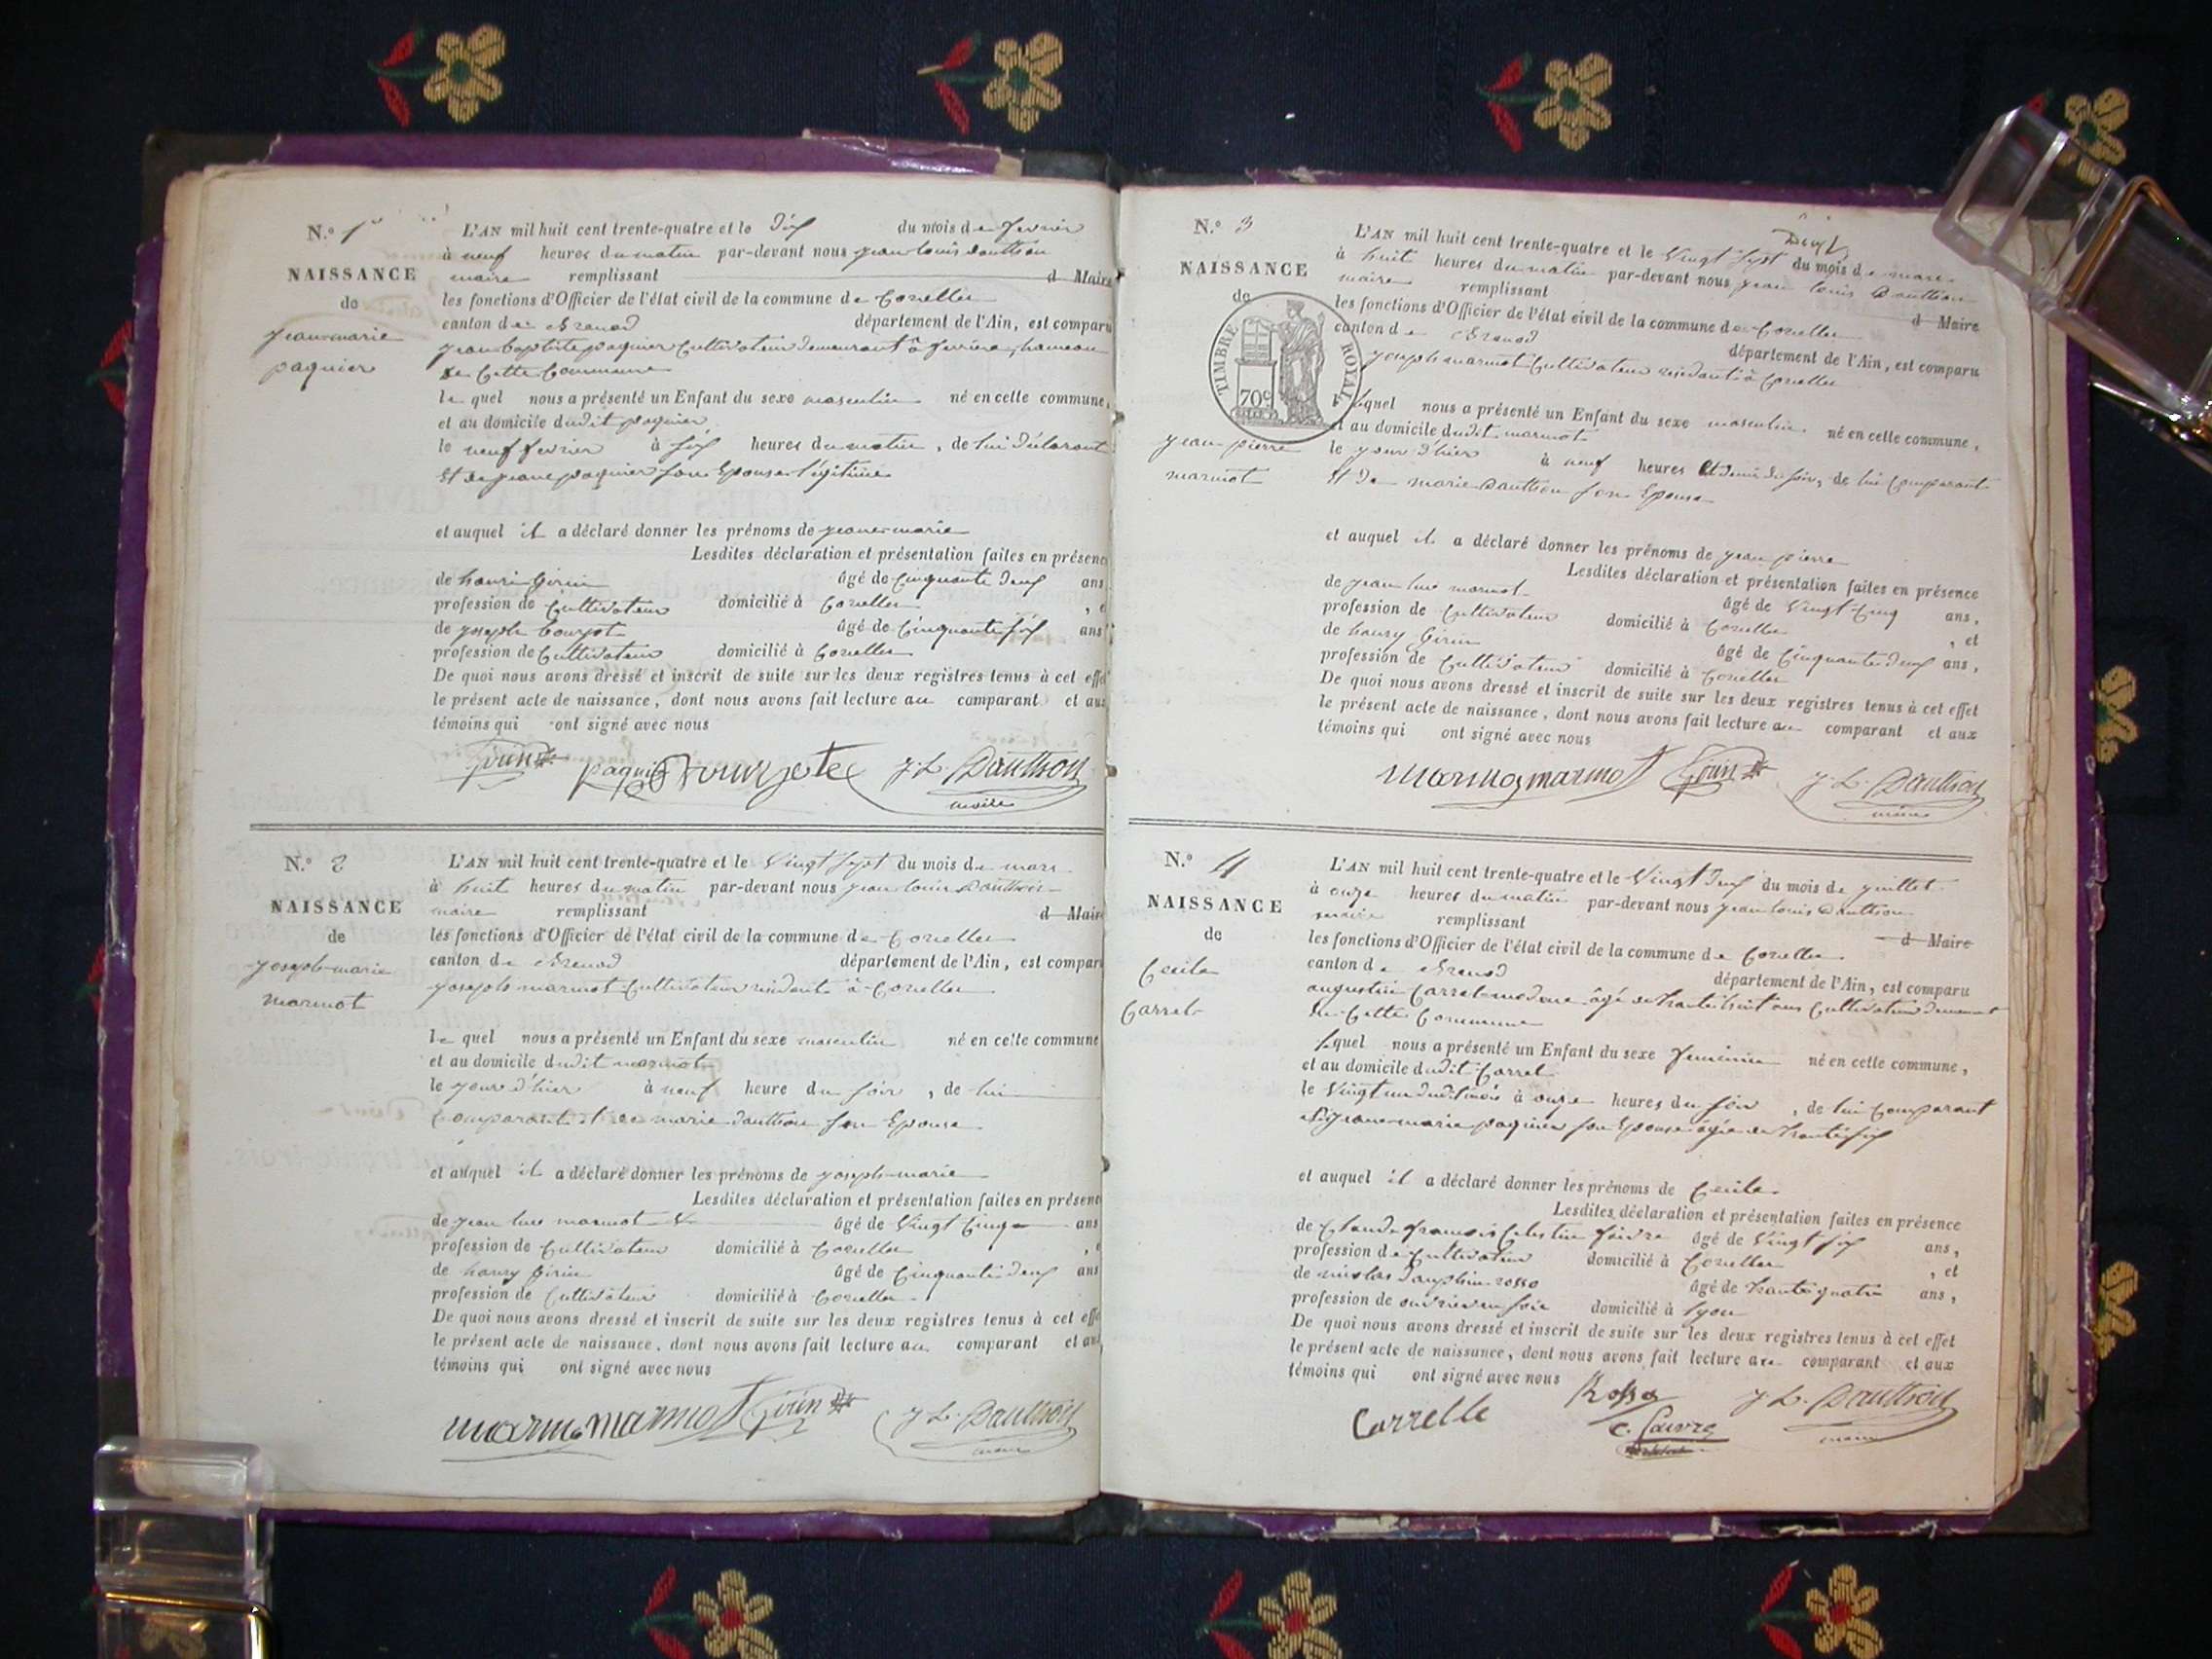 N.º 1er
NAISSANCE
de
jeanne marie
paquier
L'AN mil huit cent trente-quatre et le dix du mois de fevrier
à neuf heures du matin par-devant nous jean louis dauthon
maire remplissant d Maire
les fonctions d'Officier de l'état civil de la commune de Corcelles
canton de Brenod département de l'Ain, est comparu
jean baptiste paquier Cultivateur demeurant à ferriere, hameau
de Cette Commune
le quel nous a présenté un Enfant du sexe masculin né en cette commune,
et au domicile dudit paquier
le neuf fevrier à six heures du matin, de lui déclarant
Et de jeanne paquier son Epouse légitime
et auquel il a déclaré donner les prénoms de jeanne marie
Lesdites déclaration et présentation faites en présence
de henri Girin âgé de Cinquante deux ans
profession de Cultivateur domicilié à Corcelles
de joseph bourjot âgé de Cinquante six ans
profession de Cultivateur domicilié à Corcelles
De quoi nous avons dressé et inscrit de suite sur les deux registres tenus à cet effet
le présent acte de naissance, dont nous avons fait lecture au comparant et aux
témoins qui ont signé avec nous
Girin paquier Bourjote J. L. Dauthon
maire
N.º 2
NAISSANCE
de
joseph-marie
marmot
L'AN mil huit cent trente-quatre et le Vingt sept du mois de mars
à huit heures du matin par-devant nous jean louis Dauthon
maire remplissant d Maire
les fonctions d'Officier de l'état civil de la commune de Corcelles
canton de Brenod département de l'Ain, est comparu
joseph marmot Cultivateur residant à Corcelles
le quel nous a présenté un Enfant du sexe masculin né en cette commune
et au domicile dudit marmot
le jour d'hier à neuf heure du soir, de lui
Comparant et de marie dauthon son Epouse
et auquel il a déclaré donner les prénoms de joseph-marie
Lesdites déclaration et présentation faites en présence
de jean luc marmot âgé de Vingt Cinq ans
profession de Cultivateur domicilié à Corcelles
de henry Girin âgé de Cinquante deux ans
profession de Cultivateur domicilié à Corcelles
De quoi nous avons dressé et inscrit de suite sur les deux registres tenus à cet effet
le présent acte de naissance, dont nous avons fait lecture au comparant et aux
témoins qui ont signé avec nous
marmot Girin J. L. Dauthon
maire
N.º 3
NAISSANCE
de
TIMBRE ROYAL
70c
jean pierre
marmot
L'AN mil huit cent trente-quatre et le Vingt sept du mois de mars
à huit heures du matin par-devant nous jean louis Dauthon
maire remplissant d Maire
les fonctions d'Officier de l'état civil de la commune de Corcelles
canton de Brenod département de l'Ain, est comparu
joseph marmot Cultivateur residant à Corcelles
lequel nous a présenté un Enfant du sexe masculin né en cette commune,
et au domicile dudit marmot
le jour d'hier à neuf heures Et demi du soir, de lui Comparant
Et de marie Dauthon son Epouse
et auquel il a déclaré donner les prénoms de jean pierre
Lesdites déclaration et présentation faites en présence
de jean luc marmot âgé de Vingt-Cinq ans,
profession de Cultivateur domicilié à Corcelles, et
de henry Girin âgé de Cinquante deux ans,
profession de Cultivateur domicilié à Corcelles
De quoi nous avons dressé et inscrit de suite sur les deux registres tenus à cet effet
le présent acte de naissance, dont nous avons fait lecture au comparant et aux
témoins qui ont signé avec nous
marmot Girin J. L. Dauthon
maire
N.º 4
NAISSANCE
de
Cecile
Carrel
L'AN mil huit cent trente-quatre et le Vingt deux du mois de juillet
à onze heures du matin par-devant nous jean louis Dauthon
maire remplissant d Maire
les fonctions d'Officier de l'état civil de la commune de Corcelles
canton de Brenod département de l'Ain, est comparu
augustin Carrel âgé de trente huit ans Cultivateur
de Cette Commune
lequel nous a présenté un Enfant du sexe feminin né en cette commune,
et au domicile dudit Carrel
le Vingt un dudit mois à onze heures du soir, de lui Comparant
et de jeanne-marie paquier son Epouse âgée de trente six
et auquel il a déclaré donner les prénoms de Cecile
Lesdites déclaration et présentation faites en présence
de Claude francois Celestin âgé de Vingt six ans,
profession de Cultivateur domicilié à Corcelles, et
de nicolas dauphin rosso âgé de trente quatre ans,
profession de ouvrier en soie domicilié à lyon
De quoi nous avons dressé et inscrit de suite sur les deux registres tenus à cet effet
le présent acte de naissance, dont nous avons fait lecture au comparant et aux
témoins qui ont signé avec nous
Carrelle Rosso J. L. Dauthon
maire